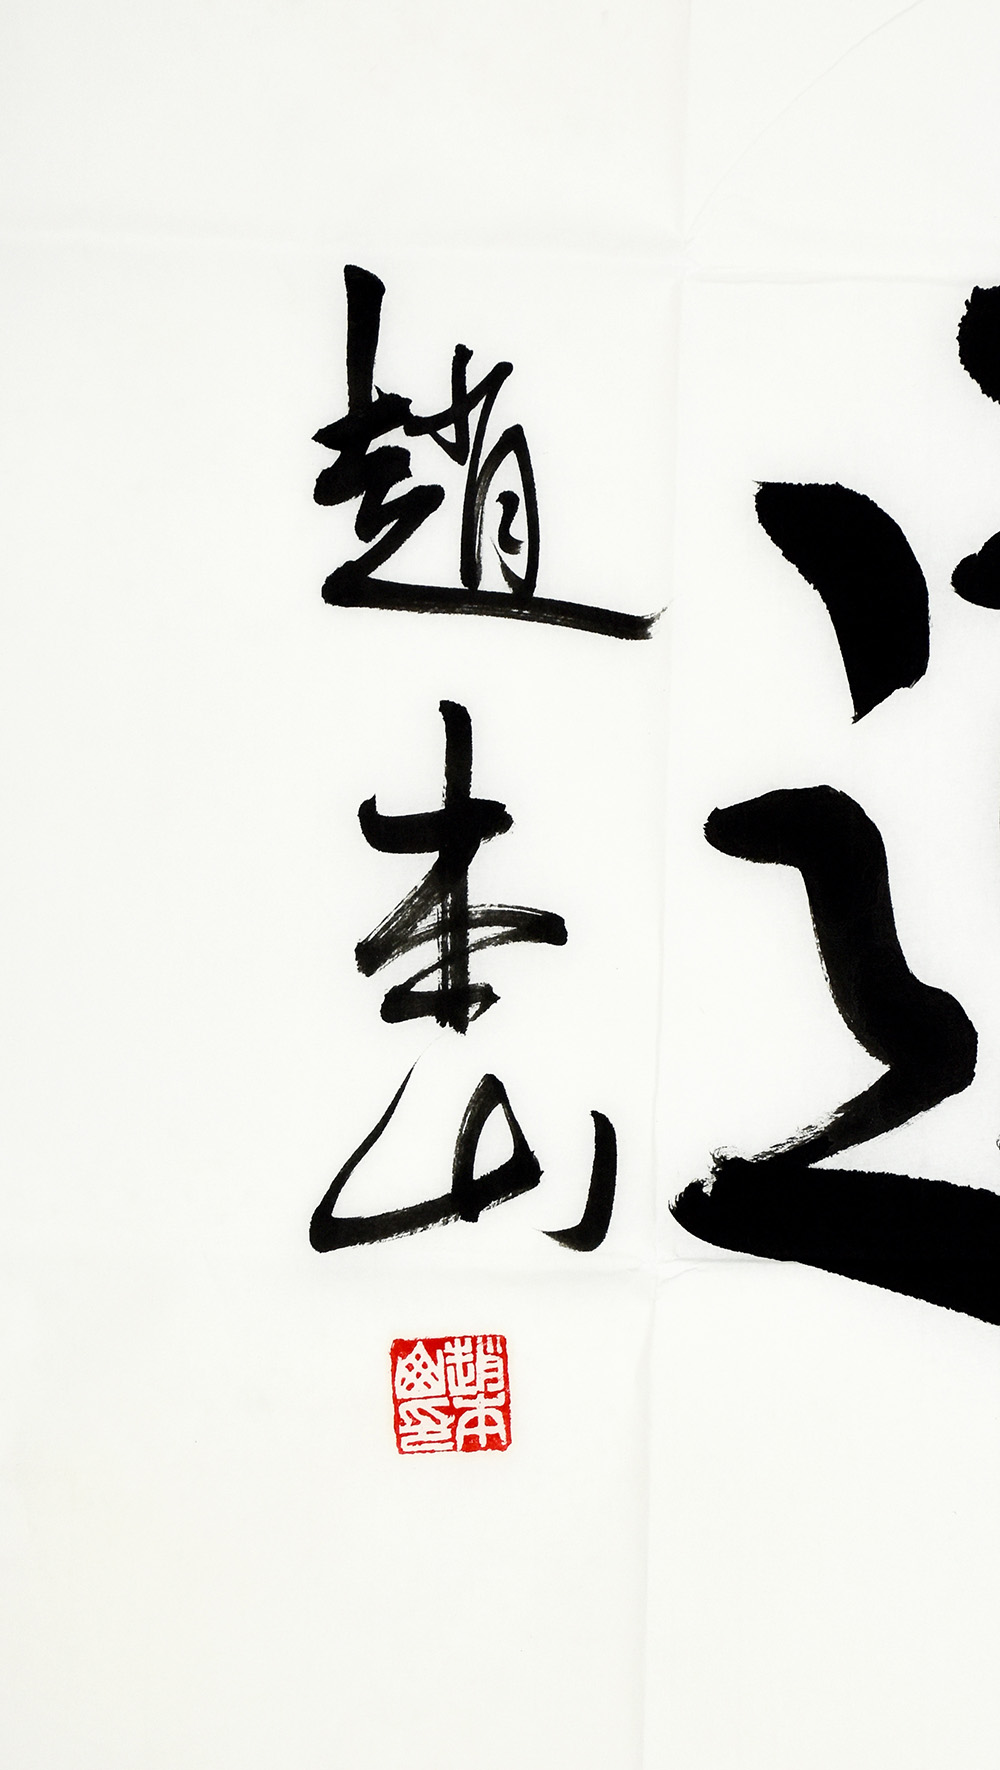 趙本山
趙本山印